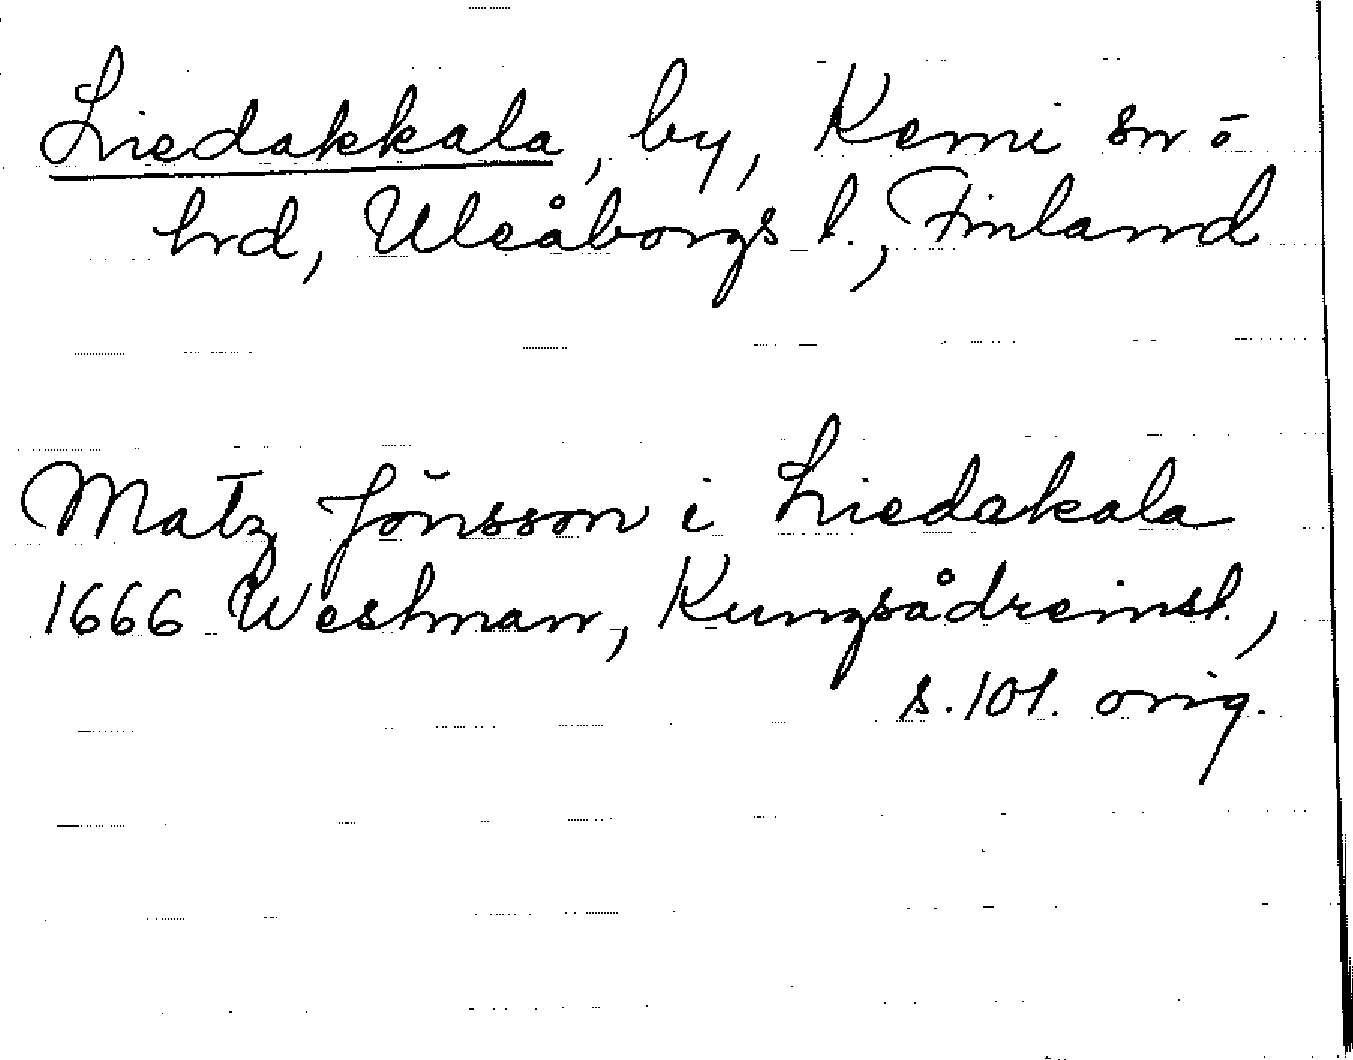 Liedakkala, by, Kemi sn ō
hrd, Uleåborgs l., Finland
Matz Jönsson i Liedakala
1666 Westman, Kungsådreinst.,
s. 101. orig.